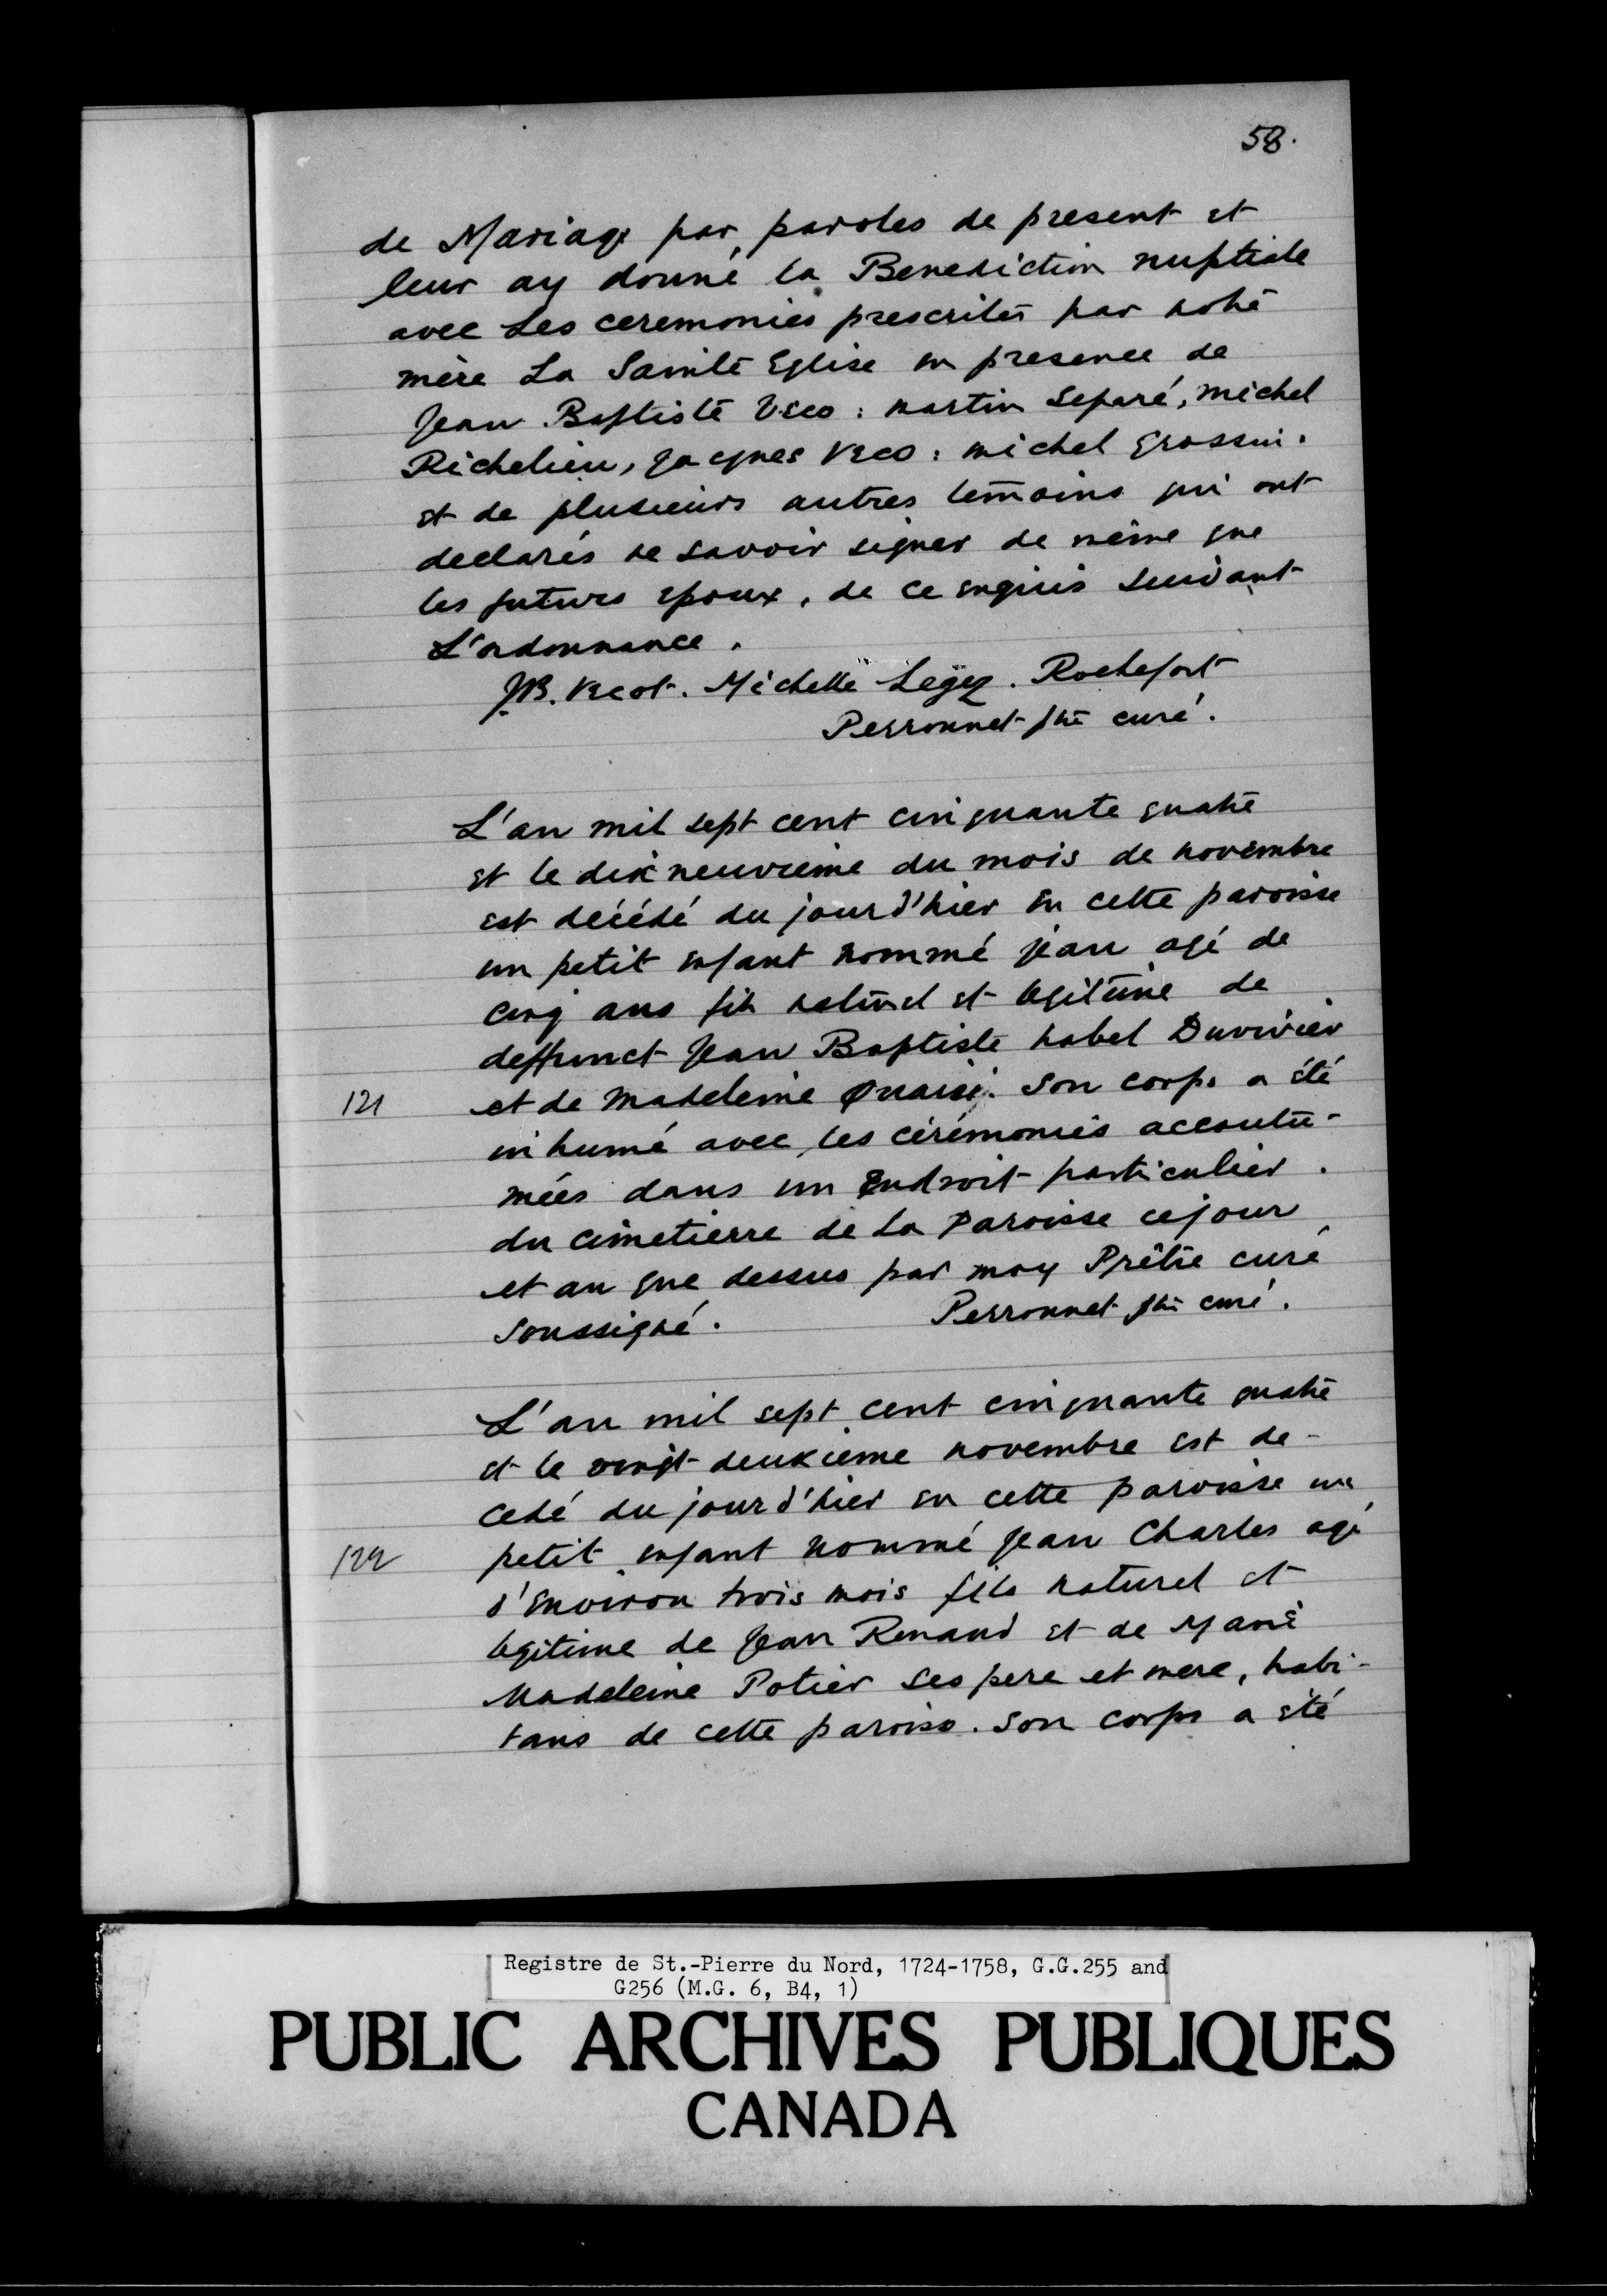 58.
de Mariage par paroles de present et
leur ay donné la Benediction nuptiale
avec Les ceremonies prescrites par notre
mère La Sainte Eglise en presence de
Jean Baptiste Veco : martin Separé, michel
Richelieu, Jacques Veco : michel Grossin.
et de plusieurs autres temoins qui ont
declarés ne savoir signer de même que
les futurs epoux, de ce enquis suivant
L'ordonnance.
JB. Vecot. Michelle Legez. Rochefort
Perronnet ptre curé.
L'an mil sept cent cinquante quatre
et le dix neuvieme du mois de novembre
est décédé du jour d'hier en cette paroisse
un petit enfant nommé jean agé de
cinq ans fils naturel et legitime de
deffunct Jean Baptiste habel Duvivier
121
et de Madeleine. Son corps a été
inhumé avec les cérémonies accoutu-
mées dans un Endroit particulier.
du cimetierre de La Paroisse ce jour
et an que dessus par moy Prêtre curé
soussigné. Perronnet ptre curé.
L'an mil sept cent cinquante quatre
et le vingt deuxieme novembre est de-
cedé du jour d'hier en cette paroisse un
122
petit enfant nommé Jean Charles agé
d'Environ trois mois fils naturel et
legitime de Jean Renaud et de Marie
Madeleine Potier ses pere et mere, habi-
tans de cette paroisse. Son corps a été
Registre de St.-Pierre du Nord, 1724-1758, G.G.255 and
G256 (M.G. 6, B4, 1)
PUBLIC ARCHIVES PUBLIQUES
CANADA